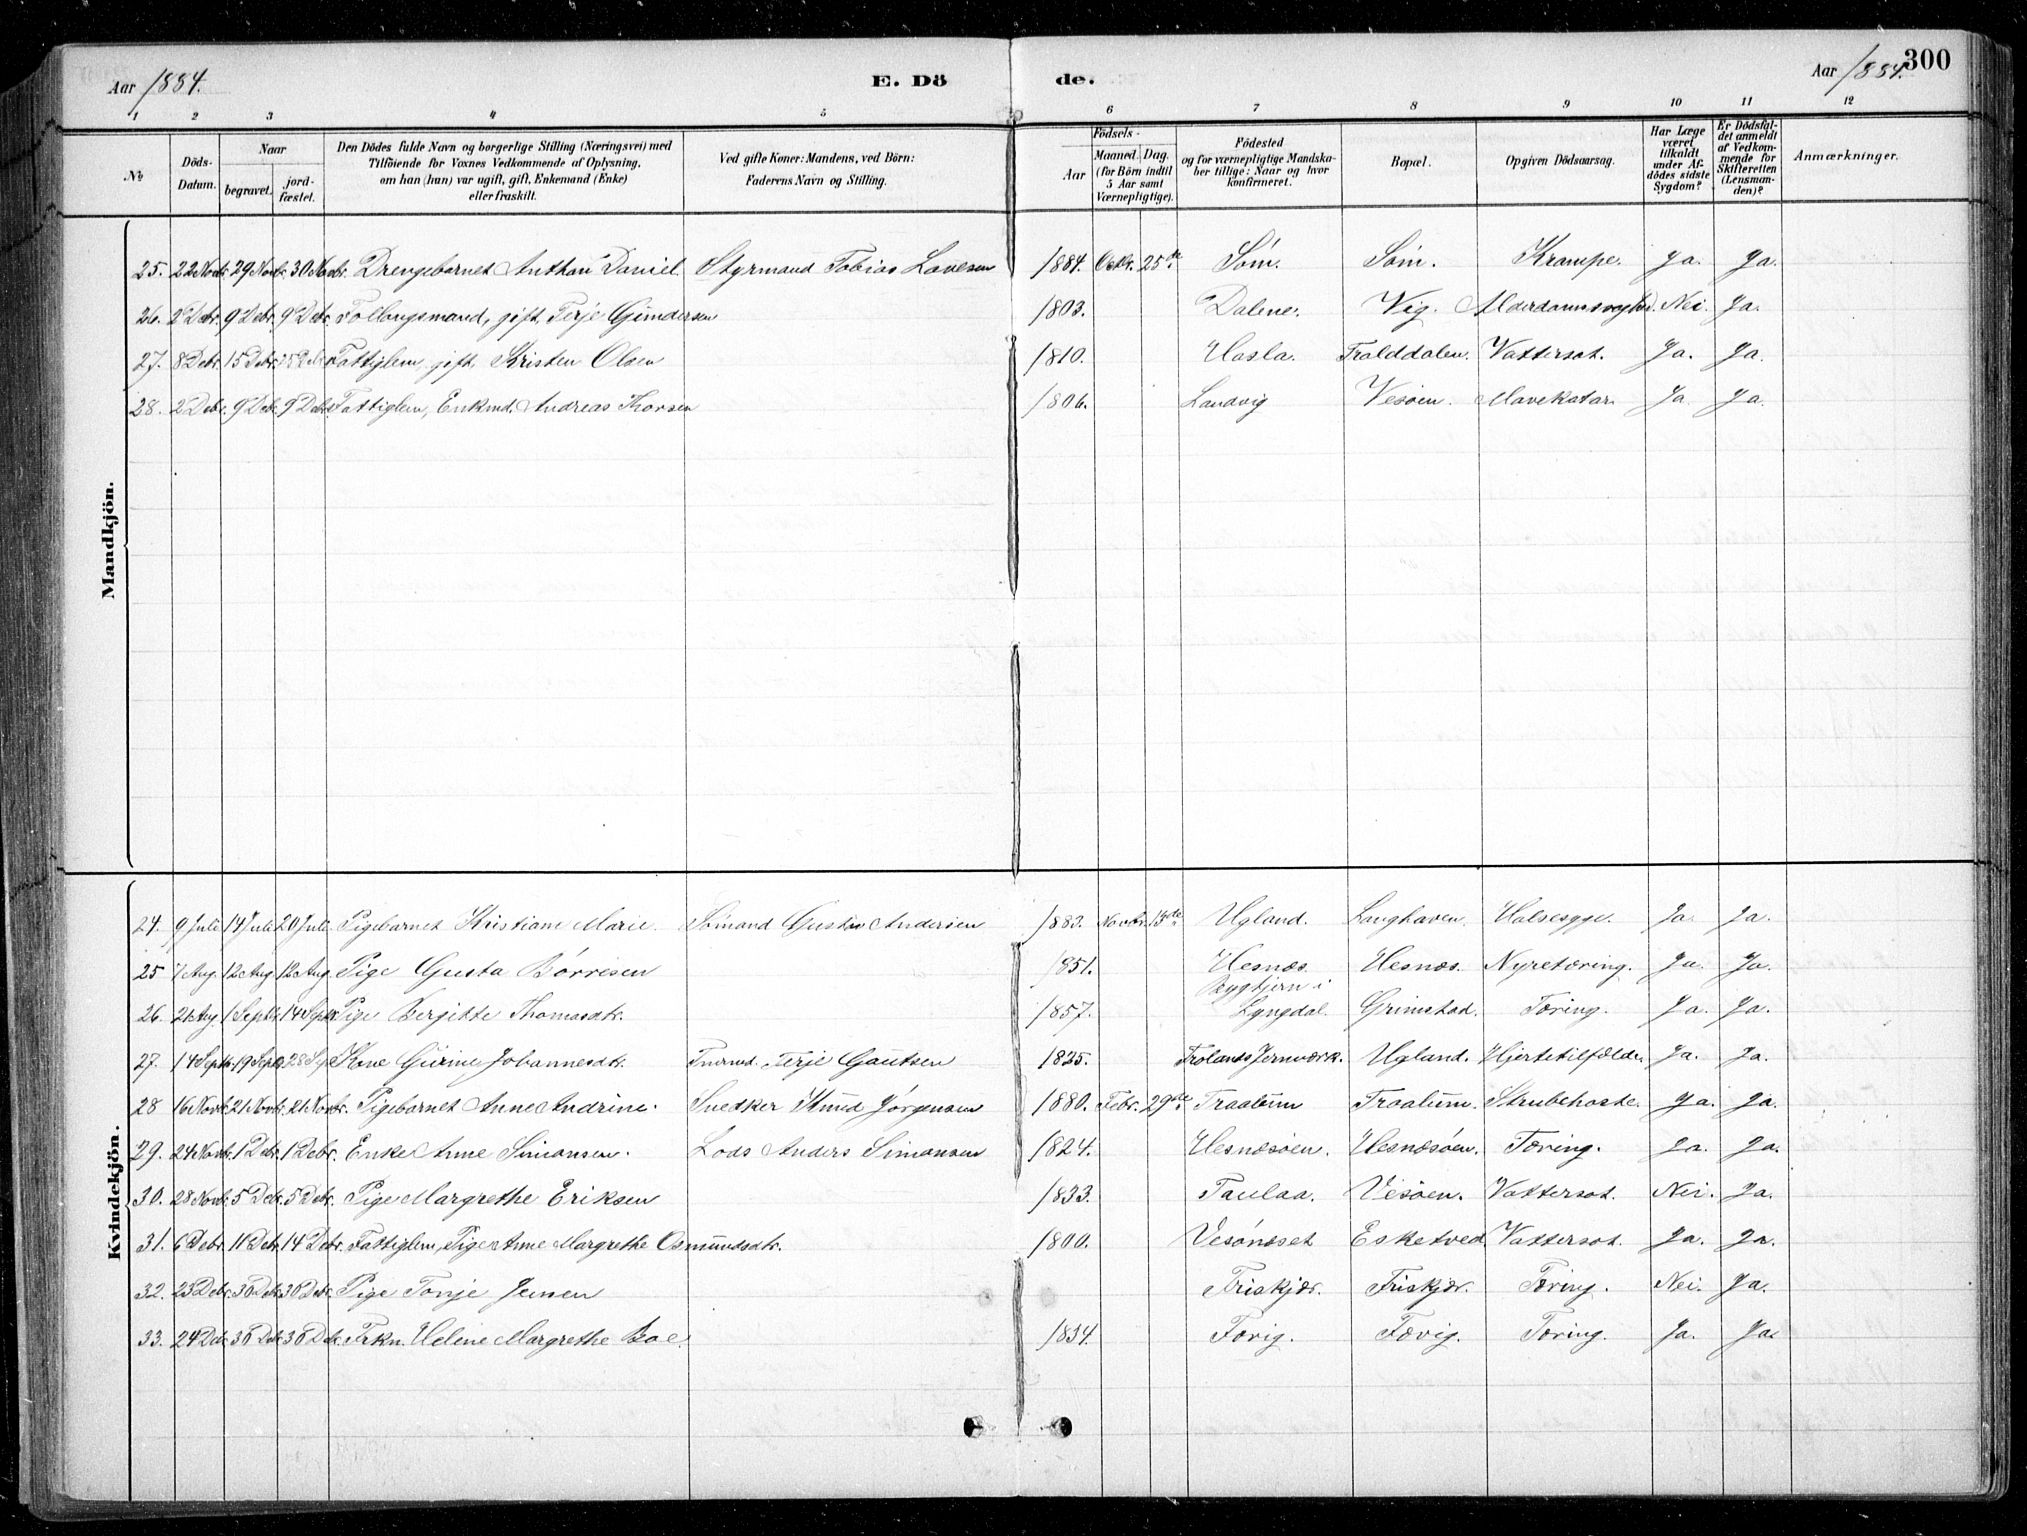 Aar 1884.
E. Dö
de.
Aar 1884.
300
1 2 3 4 5 6 7 8 9 10 11 12
No
Döds-Datum.
Naar
begravet.
jord-fæstet.
Den Dödes fulde Navn og borgerlige Stilling (Næringsvei) med
Tilföiende for Voxnes Vedkommende af Oplysning,
om han (hun) var ugift, gift, Enkemand (Enke)
eller fraskilt.
Ved gifte Koner: Mandens, ved Börn:
Faderens Navn og Stilling.
Födsels-
Aar
Maaned. Dag.
(for Börn indtil
5 Aar samt
Værnepligtige).
Födested
og for værnepligtige Mandska-
ber tillige: Naar og hvor
konfirmeret.
Bopæl.
Opgiven Dödsaarsag.
Har Læge
været
tilkaldt
under Af-
dödes sidste
Sygdom?
Er Dödsfal-
det anmeldt
af Vedkom-
mende for
Skifteretten
(Lensman-
den)?
Anmærkninger.
Mandkjön.
25. 22 Novbr. 29 Novbr. 30 Novbr. Drengebarnet Anthon Daniel Styrmand Tobias 1884. Octbr. 25de Søm. Søm. Krampe. Ja. Ja.
26. 2 Debr. 9 Debr. 9 Debr. gift, Terje Gundersen 1803. Dalene. Vig. Nei. Ja.
27. 8 Debr. 15 Debr. Fattiglem, gift, Kristen Olsen 1810. Hasla. Trolddalen. Vattersot. Ja. Ja.
28. 2 Debr. 9 Debr. 9 Debr. Fattiglem, Enkmd. Andreas Thorsen 1806. Landvig Vesøen. Mavekatar Ja Ja.
Kvindekjön.
24. 9 Juli 14 Juli 20 Juli Pigebarnet Kristiane Marie. Sømand Gustav Andersen 1883. Novbr. 13de Ugland. Langhaven. Halsesyge. Ja. Ja.
25 7 Aug. 12 Aug 12 Aug. Pige Gusta Børresen 1851. Hesnæs. Hesnæs. Nyretæring. Ja. Ja.
26. 21 Aug. 1 Septbr. 14 Septbr. Pige Bergitte Thomasdtr. 1857. Lyngdal. Grimstad. Tæring. Ja. Ja.
27. 14 Septbr. 19 Septbr. 28 Sept. Kone Gurine Johannesdtr. Terje Gautsen 1825. Frolands Jernværk. Ugland. Hjertetilfælde. Ja. Ja.
28 16 Novbr. 21 Novbr. 21 Novbr. Pigebarnet Anne Andrine. Snedker Knud Jørgensen 1880. Febr. 29de Traalum Traalum. Strubehoste. Ja. Ja.
29. 24 Novbr. 1 Debr. 1 Debr. Enke Anne Simonsen. Lods Anders Simonsen 1824. Hesnæsøen. Hesnæsøen. Tæring. Ja. Ja.
30. 28 Novbr. 5 Debr. 5 Debr. Pige Margrethe Eriksen 1833. Taulaa. Vesøen. Vattersot. Nei. Ja.
31. 6 Debr. 11 Debr. 14 Debr. Fattiglem, Pige Anne Margrethe Osmundsdtr. 1800. Vesøneset Esketved Vattersot. Ja. Ja.
32. 23 Debr. 30 Debr. 30 Debr. Pige Tonje Jensen Friskjær. Friskjær. Tæring. Nei. Ja.
33. 24 Debr. 30 Debr. 30 Debr. Frkn. Helene Margrethe Boe. 1834. Fævig. Fævig. Tæring. Ja. Ja.